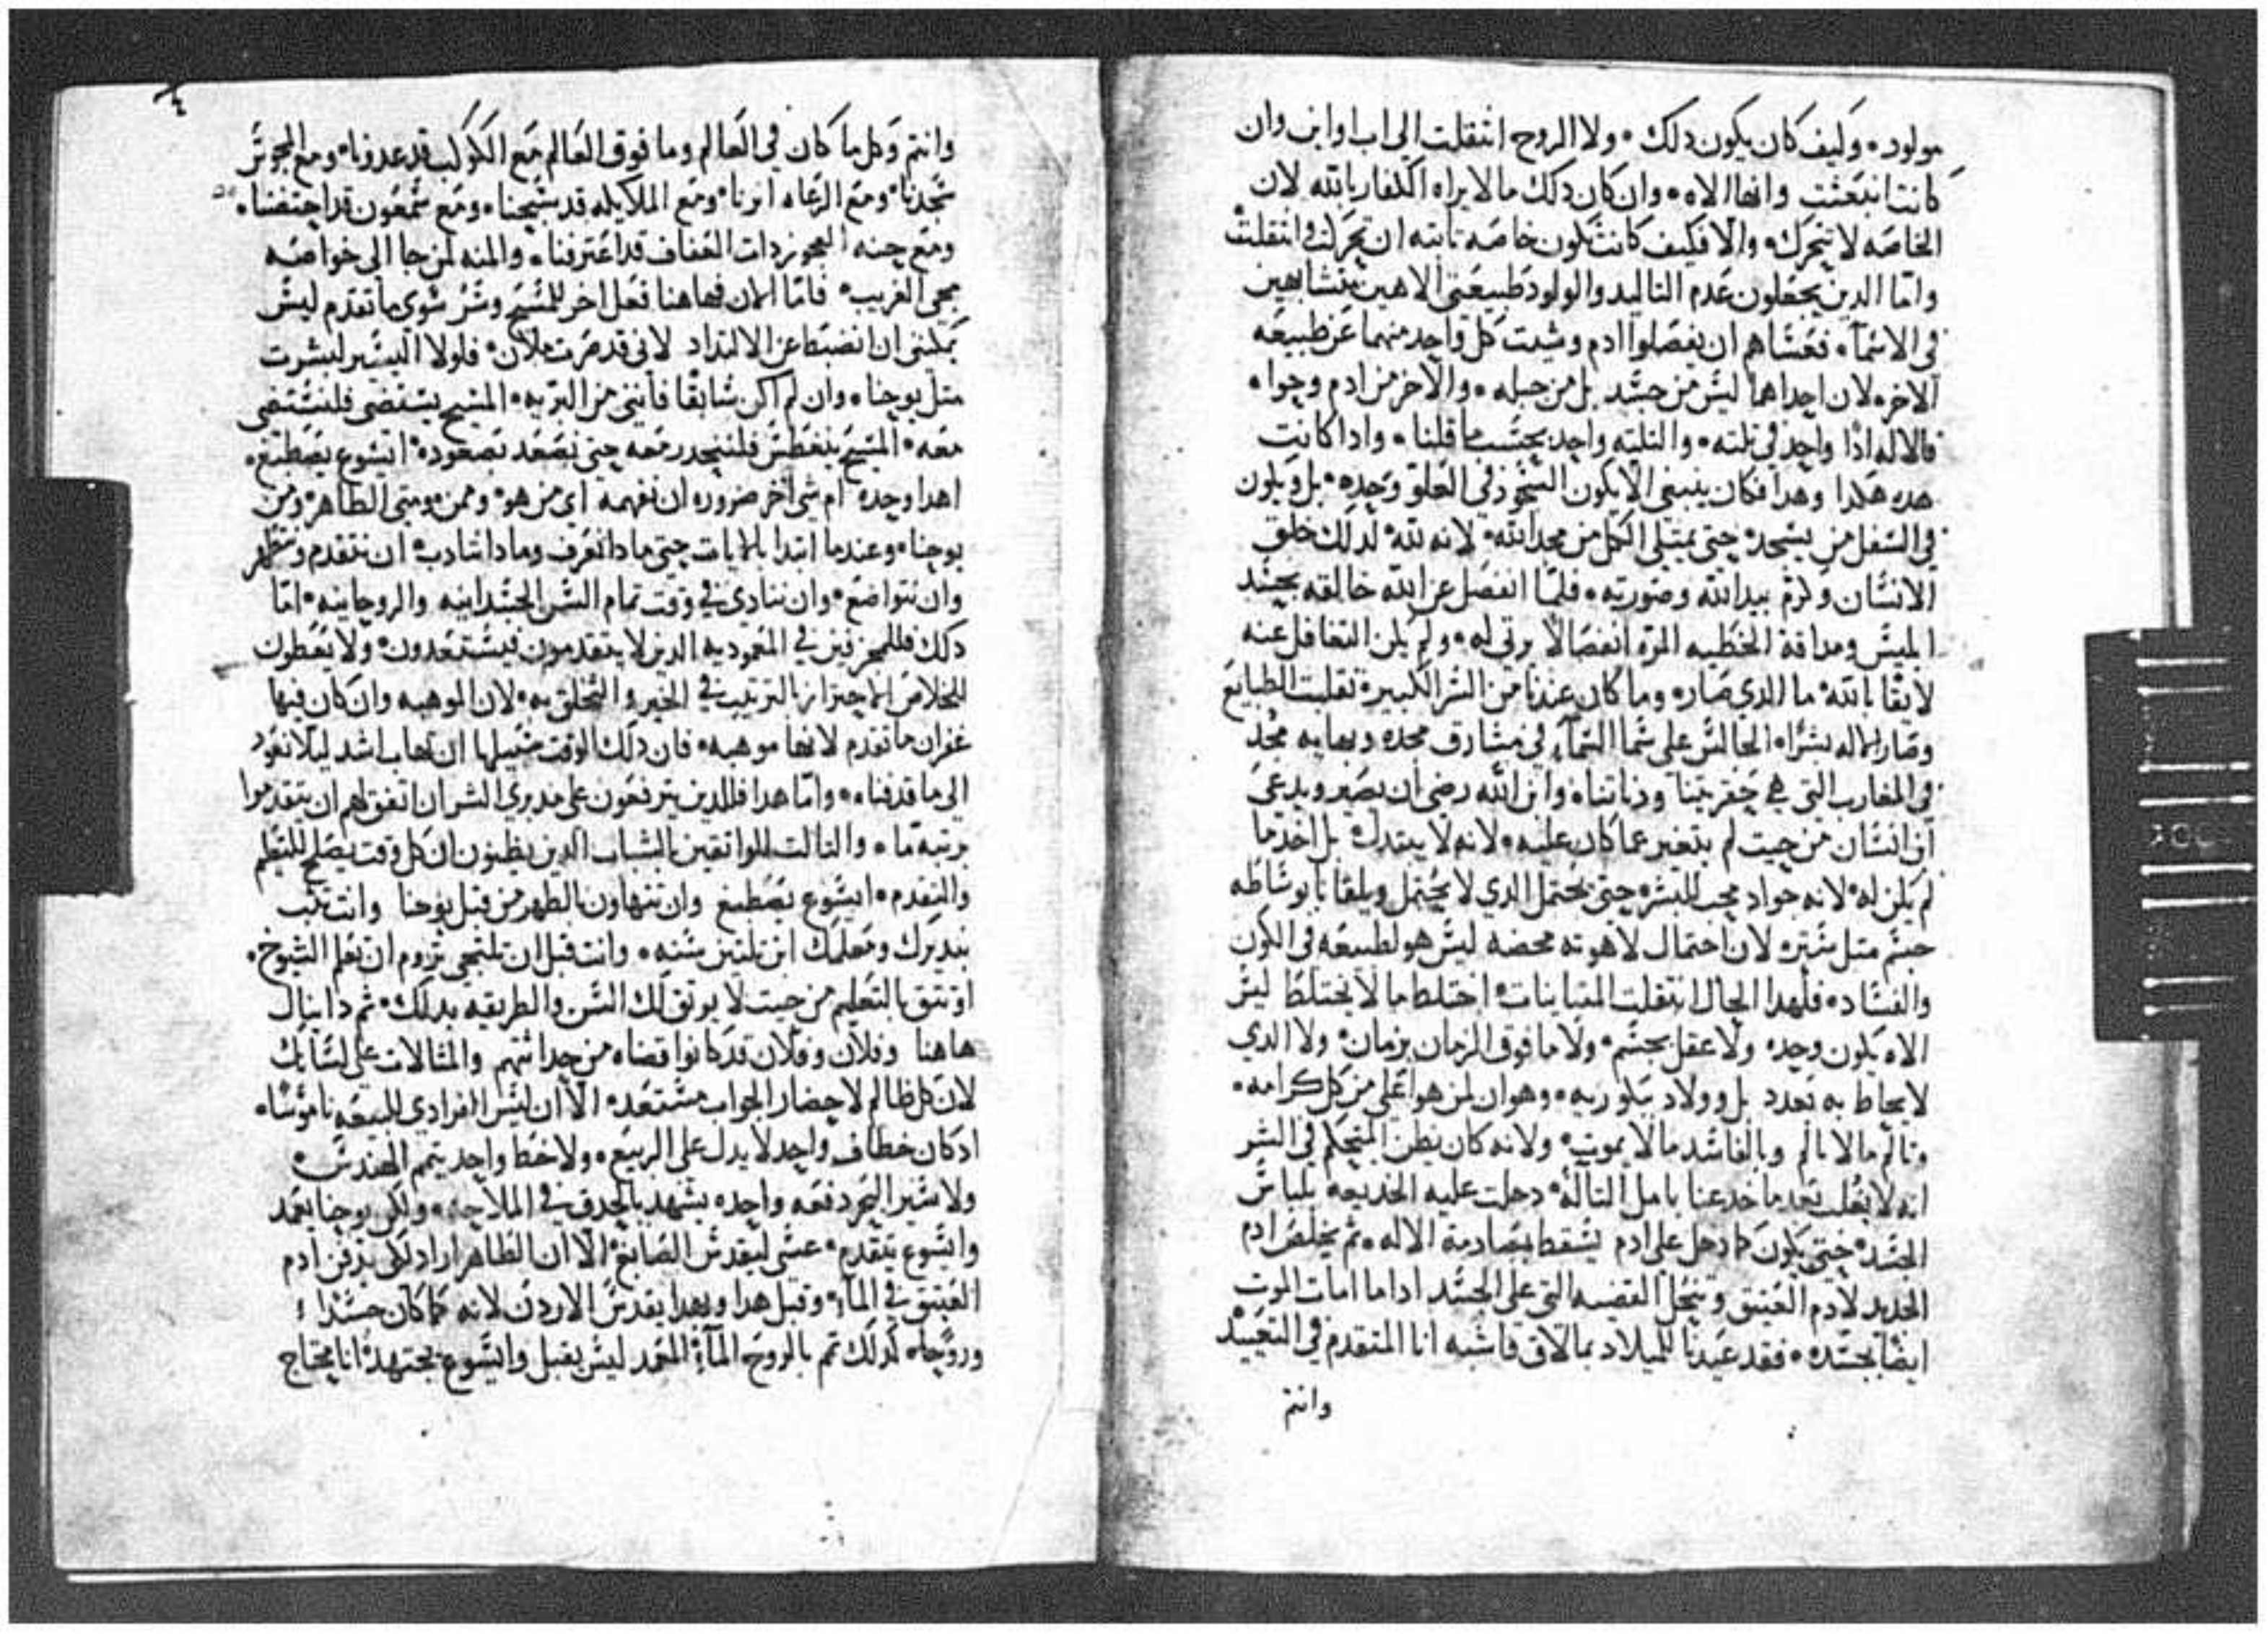 مولود. وكيف كان يكون دلك. ولا الروح انتقلت الى اب او ابن وان
كانت انبعثت وانها الاه. وان كان دلك ما لا يراه الكفار بالله لان
الخاصه لا تتحرك. والا فكيف كانت تكون خاصه ثابته ان تحركت وانتقلت
واما الدين يجعلون عدم التاليد والولود طبيعتي الاهين متشابهين
في الاسماء. فعساهم ان يفصلوا ادم وشيت كل واحد منهما عن طبيعه
الاخر. لان احداهما ليس من جسد بل من جبله. والاخر من ادم وحوا.
فالاله ادا واحد في تلته. والتلته واحد بحسب ما قلنا. وادا كانت
هده هكدا وهدا فكان ينبغي الا يكون السجود في العلو وحده. بل ويكون
في السفل من يسجد. حتى يمتلي الكل من مجد الله. لانه لله. لدلك خلق
الانسان وكرم بيد الله وصورته. فلما انفصل عن الله خالقه بحسد
ابليس ومداقة الخطيه المره انفصالا يرتى له. ولم يكن التغافل عنه
لايقا بالله. ما الدي صار. وما كان عندنا من السر الكبير. تقلبت الطبايع
وصار الاله بشرا. الجالس على سما السماء في مشارق مجده وبهايه مجد
في المغارب التي هي حقريتنا ودناتنا. وابن الله رضي ان يصير ويدعى
ابن انسان من حيت لم يتغير عما كان عليه. لانه لا يبتدل. بل اخد ما
لم يكن له. لانه جواد محب للبشر. حتى يحتمل الدي لا يحتمل ويلقانا بوساطه
جسم متل ستر. لان احتمال لاهوته محضه ليس هو لطبيعه في الكون
والفساد. فلهدا الحال انتقلت المتباينات. اختلط ما لا يختلط ليس
الاه بكون وحد. ولا عقل بجسم. ولا ما فوق الزمان بزمان. ولا الدي
لا يحاط به تعدد بل وولاد ببكوريه. وهوان لمن هو اعلى من كل كرامه.
وتالم ما لا يالم وبالفاسد ما لا يموت. ولانه كان يظن المتحكم في الشر
انه لا يغلب بعد ما خدعنا بامل التاله. دخلت عليه الخديعه بلباس
الجسد. حتى يكون كما دخل على ادم يسقط بمصادمة الاله. تم يخلص ادم
الجديد لادم العتيق وتنحل القضيه التي على الجسد اداما امات الموت
ايضا بجسده. فقد عيدنا للميلاد بما لاق فاشبه انا المتقدم في التعييد
وانتم
وانتم وكل ما كان في العالم وما فوق العالم مع الكوكب قد عدونا. ومع المجوس
سجدنا. ومع الرعاه انرنا. ومع الملايكه قد سبحنا. ومع سمعون قد احتضنا.
ومع حنه العجوز دات العفاف قد اعترفنا. والمنه لمن جا الى خواصه
مجى الغريب. فاما الان فهاهنا فعل اخر للمسيح وسر سوى ما تقدم ليس
يمكنني ان انضبط عن الالتداد لاني قد صرت ملان. فلولا اليسير لبشرت
متل يوحنا. وان لم اكن سابقا فانني من البريه. المسيح يستضي فلنستضي
معه. المسيح يتغطس فلننحدر معه حتى نصعد بصعوده. ايسوع يصطبغ.
اهدا وحده ام شي اخر ضروره ان نفهمه اي من هو. وممن. ومتى الطاهر. ومن
يوحنا. وعندما ابتدا بالايات حتى مادا نعرف ومادا نتادب. ان نتقدم ونتطهر
وان نتواضع. وان ننادي في وقت تمام السن الجسدانيه والروحانيه. اما
دلك فللمحزقين في المعموديه الدين لا يتقدمون فيستعدون. ولا يعطون
للخلاص احتراز بالترتيب في الخير والتخلق به. لان الموهبه وان كان فيها
غفران ما تقدم لانها موهبه. فان دلك الوقت سبيلها ان تهاب اشد ليلا نعود
الى ما قدفناه. واما هدا فللدين يترفعون على مدبري السر ان اتفق لهم ان يتقدموا
برتبه ما. والتالت للواتقين بالشباب الدين يظنون ان كل وقت يصلح للتعليم
والتقدم. ايسوع يصطبغ وان تتهاون بالطهر من قبل يوحنا وانت تثب
بنديرك ومعلمك ابن تلتين سنه. وانت قبل ان تلتحي تروم ان تعلم الشيوخ.
او تتق بالتعليم من حيت لا يوتق لك السن والطريقه بدلك. تم دانيال
هاهنا وفلان وفلان قد كانوا قضاه من حداتتهم والمتالات على لسانك
لان كل ظالم لاحضار الجواب مستعد. الا ان ليس الفرادي للبيعه ناموسا.
اد كان خطاف واحد لا يدل على الربيع. ولا خط واحد يتمم الهندس.
ولا سير البحر دفعه واحده يشهد بالحدق في الملاحه. ولكن يوحنا يعمد
وايسوع يتقدم. عسى ليقدس الصابغ. الا ان الظاهر اراد لكي يدفن ادم
العتيق في الماء. وقبل هدا وبهدا يقدس الاردن لانه كما كان جسدا
وروحا. كدلك تمم بالروح الماء. المعمد ليس يقبل وايسوع يجتهد. انا محتاج